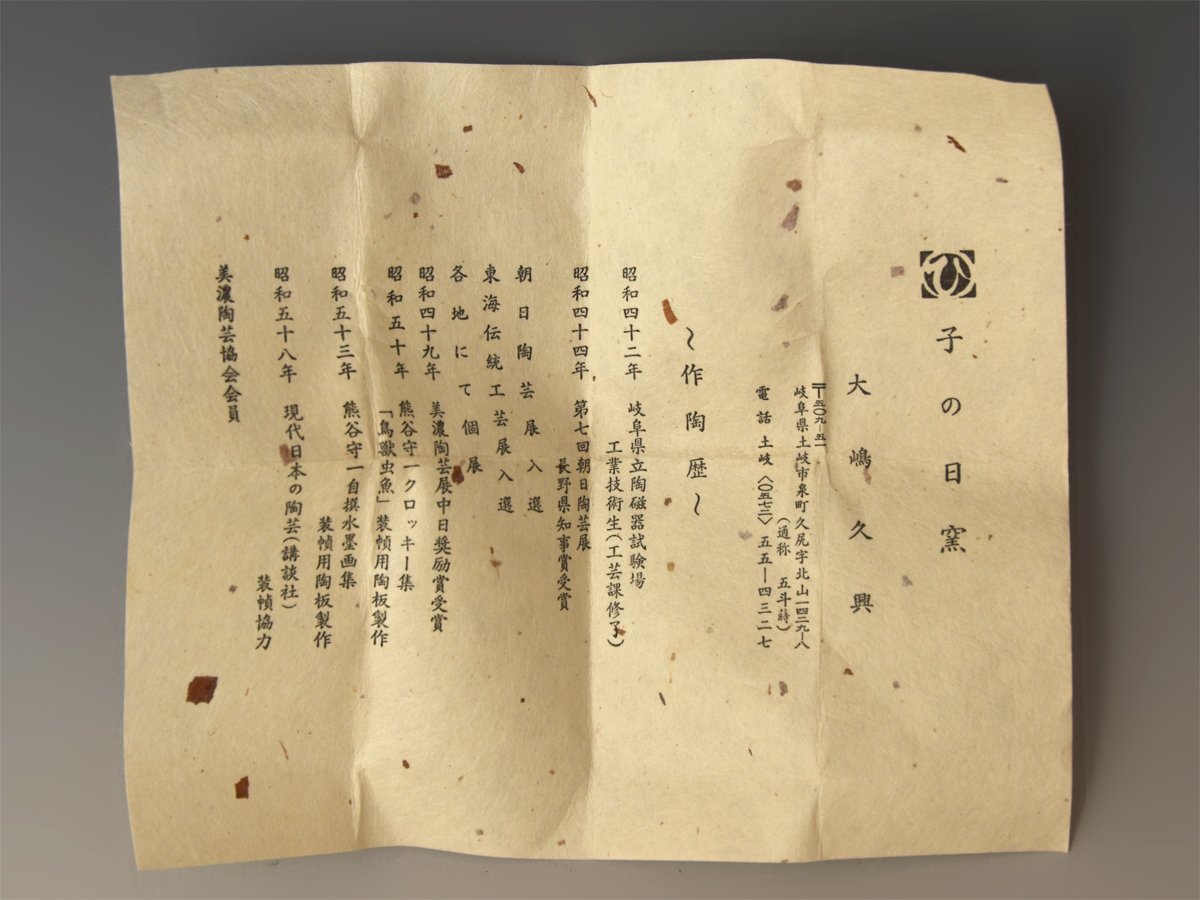 子の日窯
大嶋久興
〒五〇九-五一
岐阜県土岐市泉町久尻字北山一四二九-八
(通称 五斗蒔)
電話 土岐 〈〇五七二〉 五五―四三二七
～作陶歴～
昭和四十二年 岐阜県立陶磁器試験場
工業技術生(工芸課修了)
昭和四十四年 第七回朝日陶芸展
長野県知事賞受賞
朝日陶芸展入選
東海伝統工芸展入選
各地にて個展
昭和四十九年 美濃陶芸展中日奨励賞受賞
昭和五十年 熊谷守一クロッキー集
「鳥獣虫魚」装幀用陶板製作
昭和五十三年 熊谷守一自撰水墨画集
装幀用陶板製作
昭和五十八年 現代日本の陶芸(講談社)
装幀協力
美濃陶芸協会会員